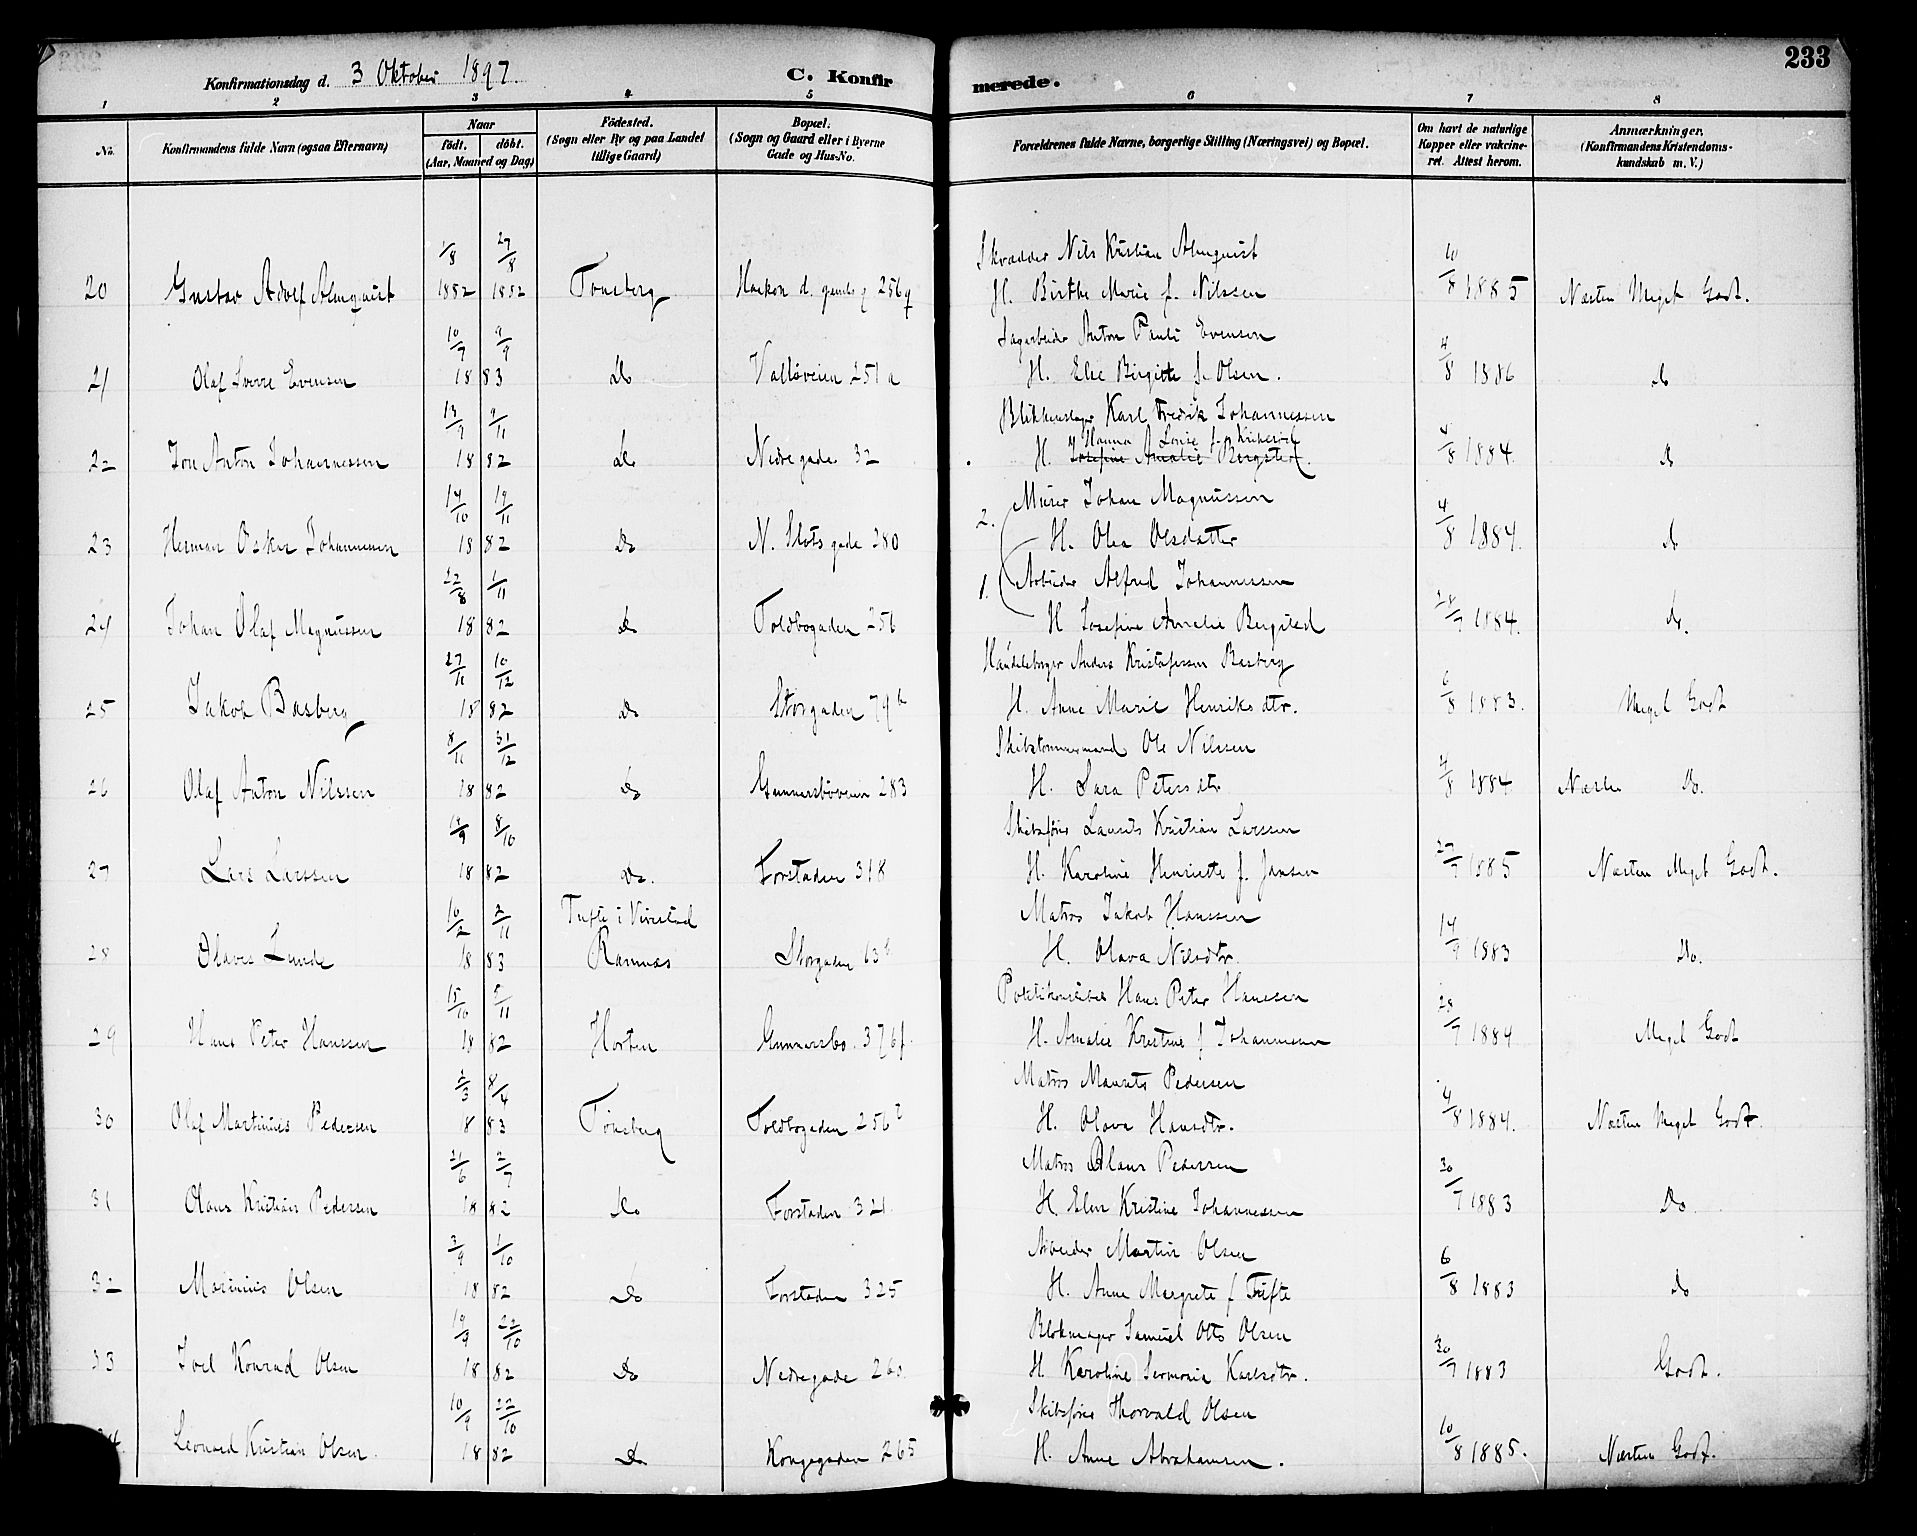 233
Konfirmationsdag d. 3 Oktober 1897.
C. Konfirmerede.
1 2 3 4 5 6 7 8
No.
Konfirmandens fulde Navn (ogsaa Efternavn)
Naar
födt. döbt.
(Aar, Maaned og Dag)
Födested.
(Sogn eller By og paa Landet
tillige Gaard)
Bopæl.
(Sogn og Gaard eller i Byerne
Gade og Hus-No.
Forældrenes fulde Navne, borgerlige Stilling (Næringsvei) og Bopæl.
Om havt de naturlige
Kopper eller vakcine-
ret. Attest herom.
Anmærkninger.
(Konfirmandens Kristendoms-
kundskab m. V.)
1/8 27/8 Skrædder Nils Kristian Almquist 10/8
20 Gustav Adolf Almquist 1882 1882 Tønsberg Haakon d. gamles g 256 q H. Birthe Marie f. Nilssen 1885 Næsten Meget Godt.
10/7 9/9 Sagarbeider Anton Pauli Evensen 4/8
21 Olaf Sverre Evensen 1883 Do Valløveien 251 a H. Elie Birgitte f. Olsen. 1886 do
13/9 9/11 Blikkenslager Karl Fredrik Johannessen 4/8
22 Jon Anton Johannessen 1882 Do Nedregade 32 H. Josefine Amalie Bergsted. Hanna Louise f. 1884. do
14/10 19/11 2. Murer Johan Magnussen 4/8
23 Herman Oskar Johannessen 1882 Do N. Slots gade 280 H. Olea Olsdatter 1884. do
22/8 1/11 1. Arbeider Alfred Johannessen 28/7
24 Johan Olaf Magnussen 1882 Do Toldbogaden 256 H Josefine Amalie Bergsted 1884. do.
27/11 10/12 Handelsborger Anders Kristofersen Basberg 6/8
25 Jakob Basberg 1882 Do Storgaden 79 b H. Anne Marie Henriksdtr. 1883. Meget Godt
8/11 31/12 Skibstømmermand Ole Nilssen 4/8
26 Olaf Anton Nilssen 1882 Do Gunnarsbøveien 283 H. Sara Petersdtr 1884 Næsten Do.
14/9 8/10 Skibsfører Laurits Kristian Larssen 27/7
27 Lars Larssen 1882 Do. Forstaden 318 H. Karoline Henriette f. Jansen 1885 Næsten Meget Godt.
10/2 2/11 Tufte i Matros Jakob Hanssen 14/9
28 Olaves Lunde 1883 Ramnæs Storgaden 63 H. Olava Nilsdtr. 1883 Do.
15/10 5/11 Politikonstabel Hans Peter Hanssen 28/7
29 Hans Peter Hanssen 1882 Horten Gunnarsbø. 376 f. H. Amalie Kristine f Johannessen 1884 Meget Godt
2/3 8/4 Matros Maurits Pedersen 4/8
30 Olaf Martinius Pedersen 1883 Tønsberg Toldbogaden 256 H. Olava Hansdtr. 1884. Næsten Meget Godt.
21/6 2/7 Matros Olaus Pedersen 30/7
31 Olaus Kristian Pedersen 1882 Do Forstaden 321 H. Elen Kristine Johannessen 1883 Do.
3/9 1/10 Arbeider Martin Olsen 6/8
32 Marinius Olsen 1882 Do Forstaden 325 H. Anne Margrete f Tufte 1883 do
19/9 22/10 Blokmager Samuel Otto Olsen 30/7
33 Joel Konrad Olsen 1882 Do Nedregade 260 H. Karoline Severine Karlsdtr. 1883 Godt.
10/9 22/10 Skibsfører Thorvald Olsen 10/8
Leonard Kristian Olsen. 1882 Do Kongegaden 265 H. Anne Abrahamsen. 1885. Næsten Godt.